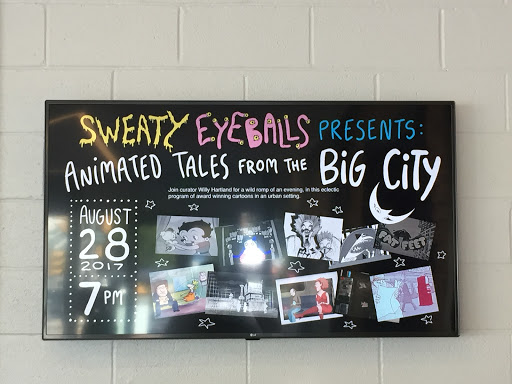 SWEATY EYEBALLS PRESENTS:
ANIMATED TALES FROM THE BIG CITY
Join curator Willy Hartland for a wild romp of an evening, in this eclectic
program of award winning cartoons in an urban setting.
AUGUST
28
2017
7 PM
FAT FEET
LG